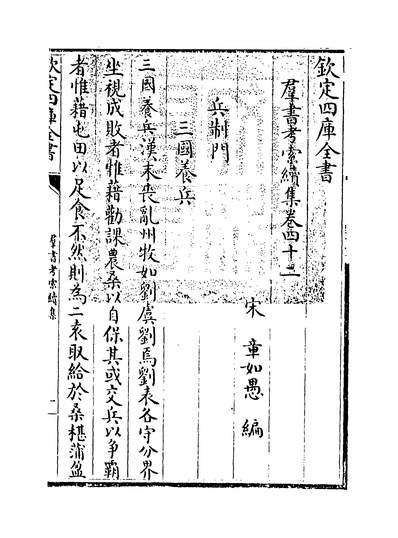 欽定四庫全書
羣書考索續集卷四十二
宋 章如愚 編
兵制門
三國養兵
三國養兵漢末喪亂州牧如劉虞劉焉劉表各守分界
坐視成敗者惟藉勸課農桑以自保其或交兵以爭霸
者惟藉屯田以足食不然則為二袁取給於桑椹蒲蠃
欽定四庫全書
羣書考索續集